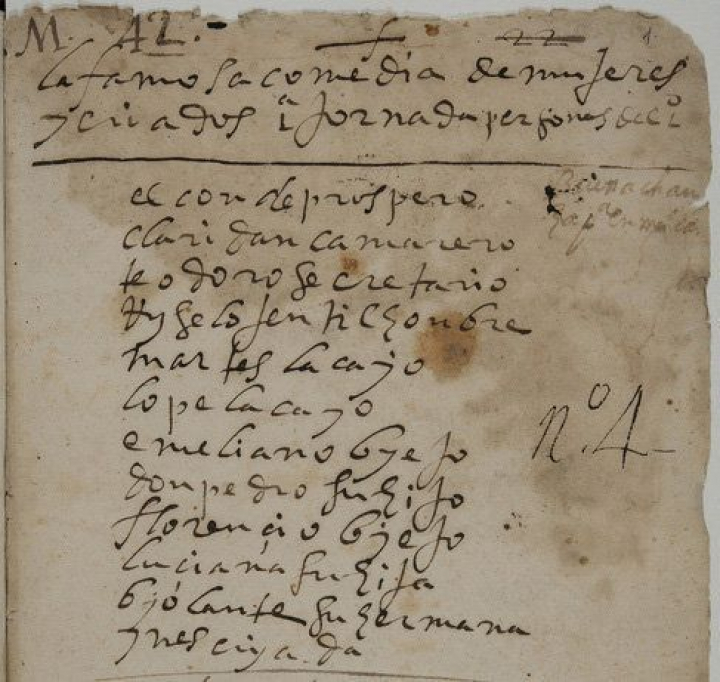 M. 42.
22
la famosa comedia de mujeres
y criados 1ª jornada personas del 1º
el conde prospero
claridan camarero
teodoro secretario
tyselo jentilhonbre
martes lacayo
lope lacayo
emeliano byejo
don pedro su hijo
florencio byejo
luciana su hija
byolante su hermana
ynes criada
nº 4